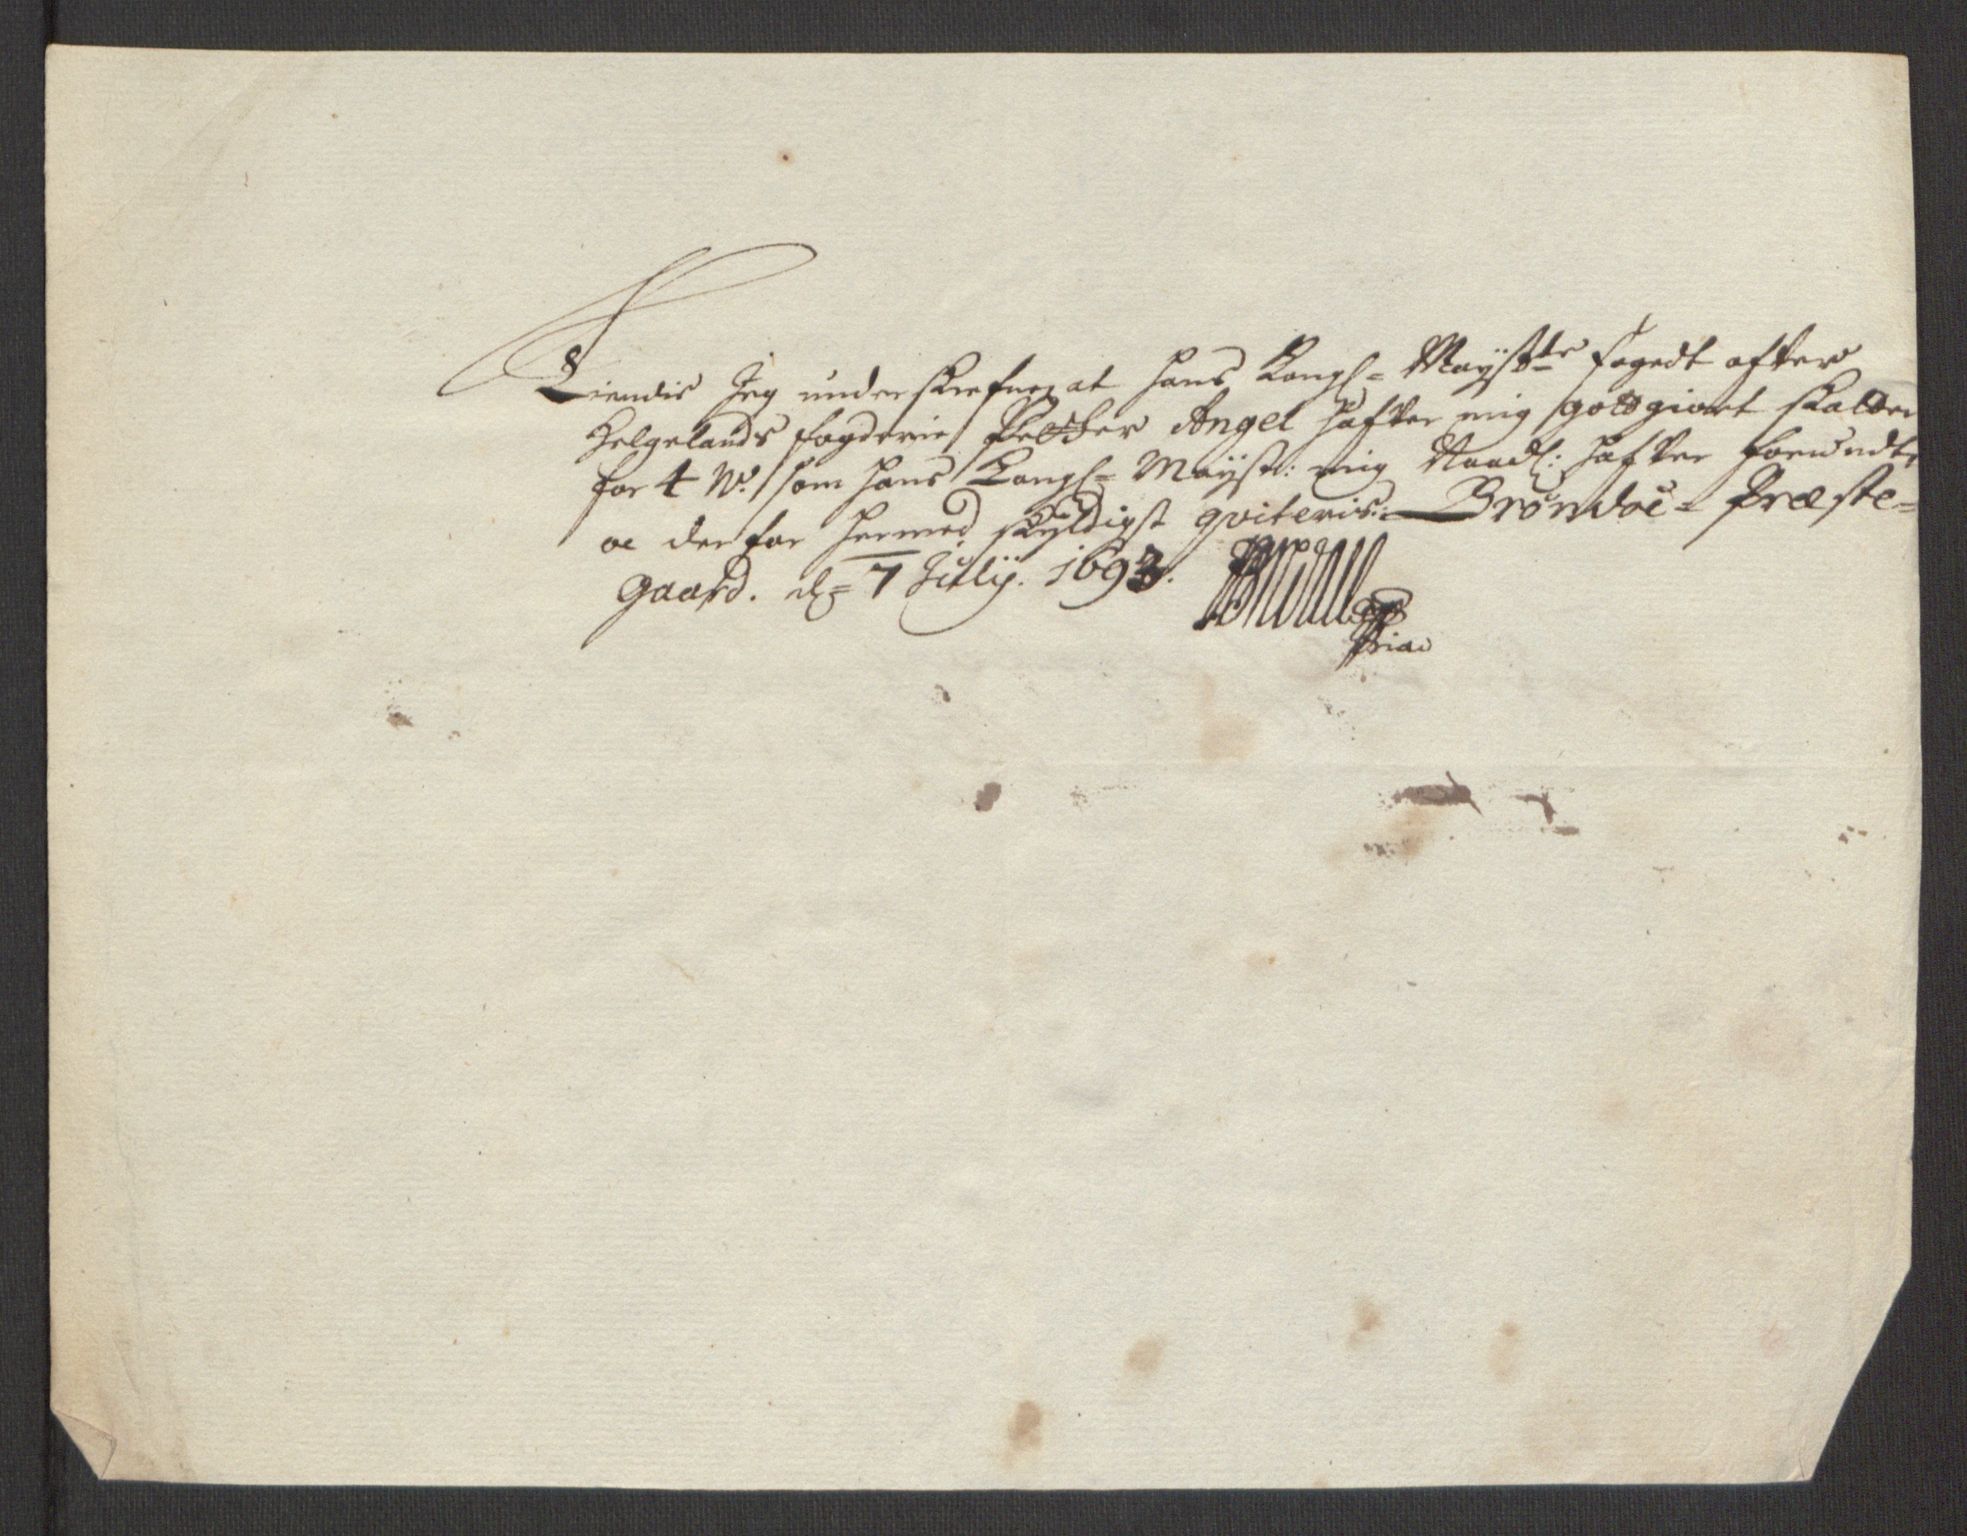 Kiendis Jeg underskrefne, at Hans Kongl= Maÿst:ts fogedt ofver
Helgelands fogderie Petter Angel hafver mig gottgiort skatter
for 4 W: som Hans Kongl= Maÿst: mig Naadl: hafver forundt,
oc derfor hermed skÿldigst qviteris: Brønöe= Præste=
gaard. d= 7 Julÿ. 1693.